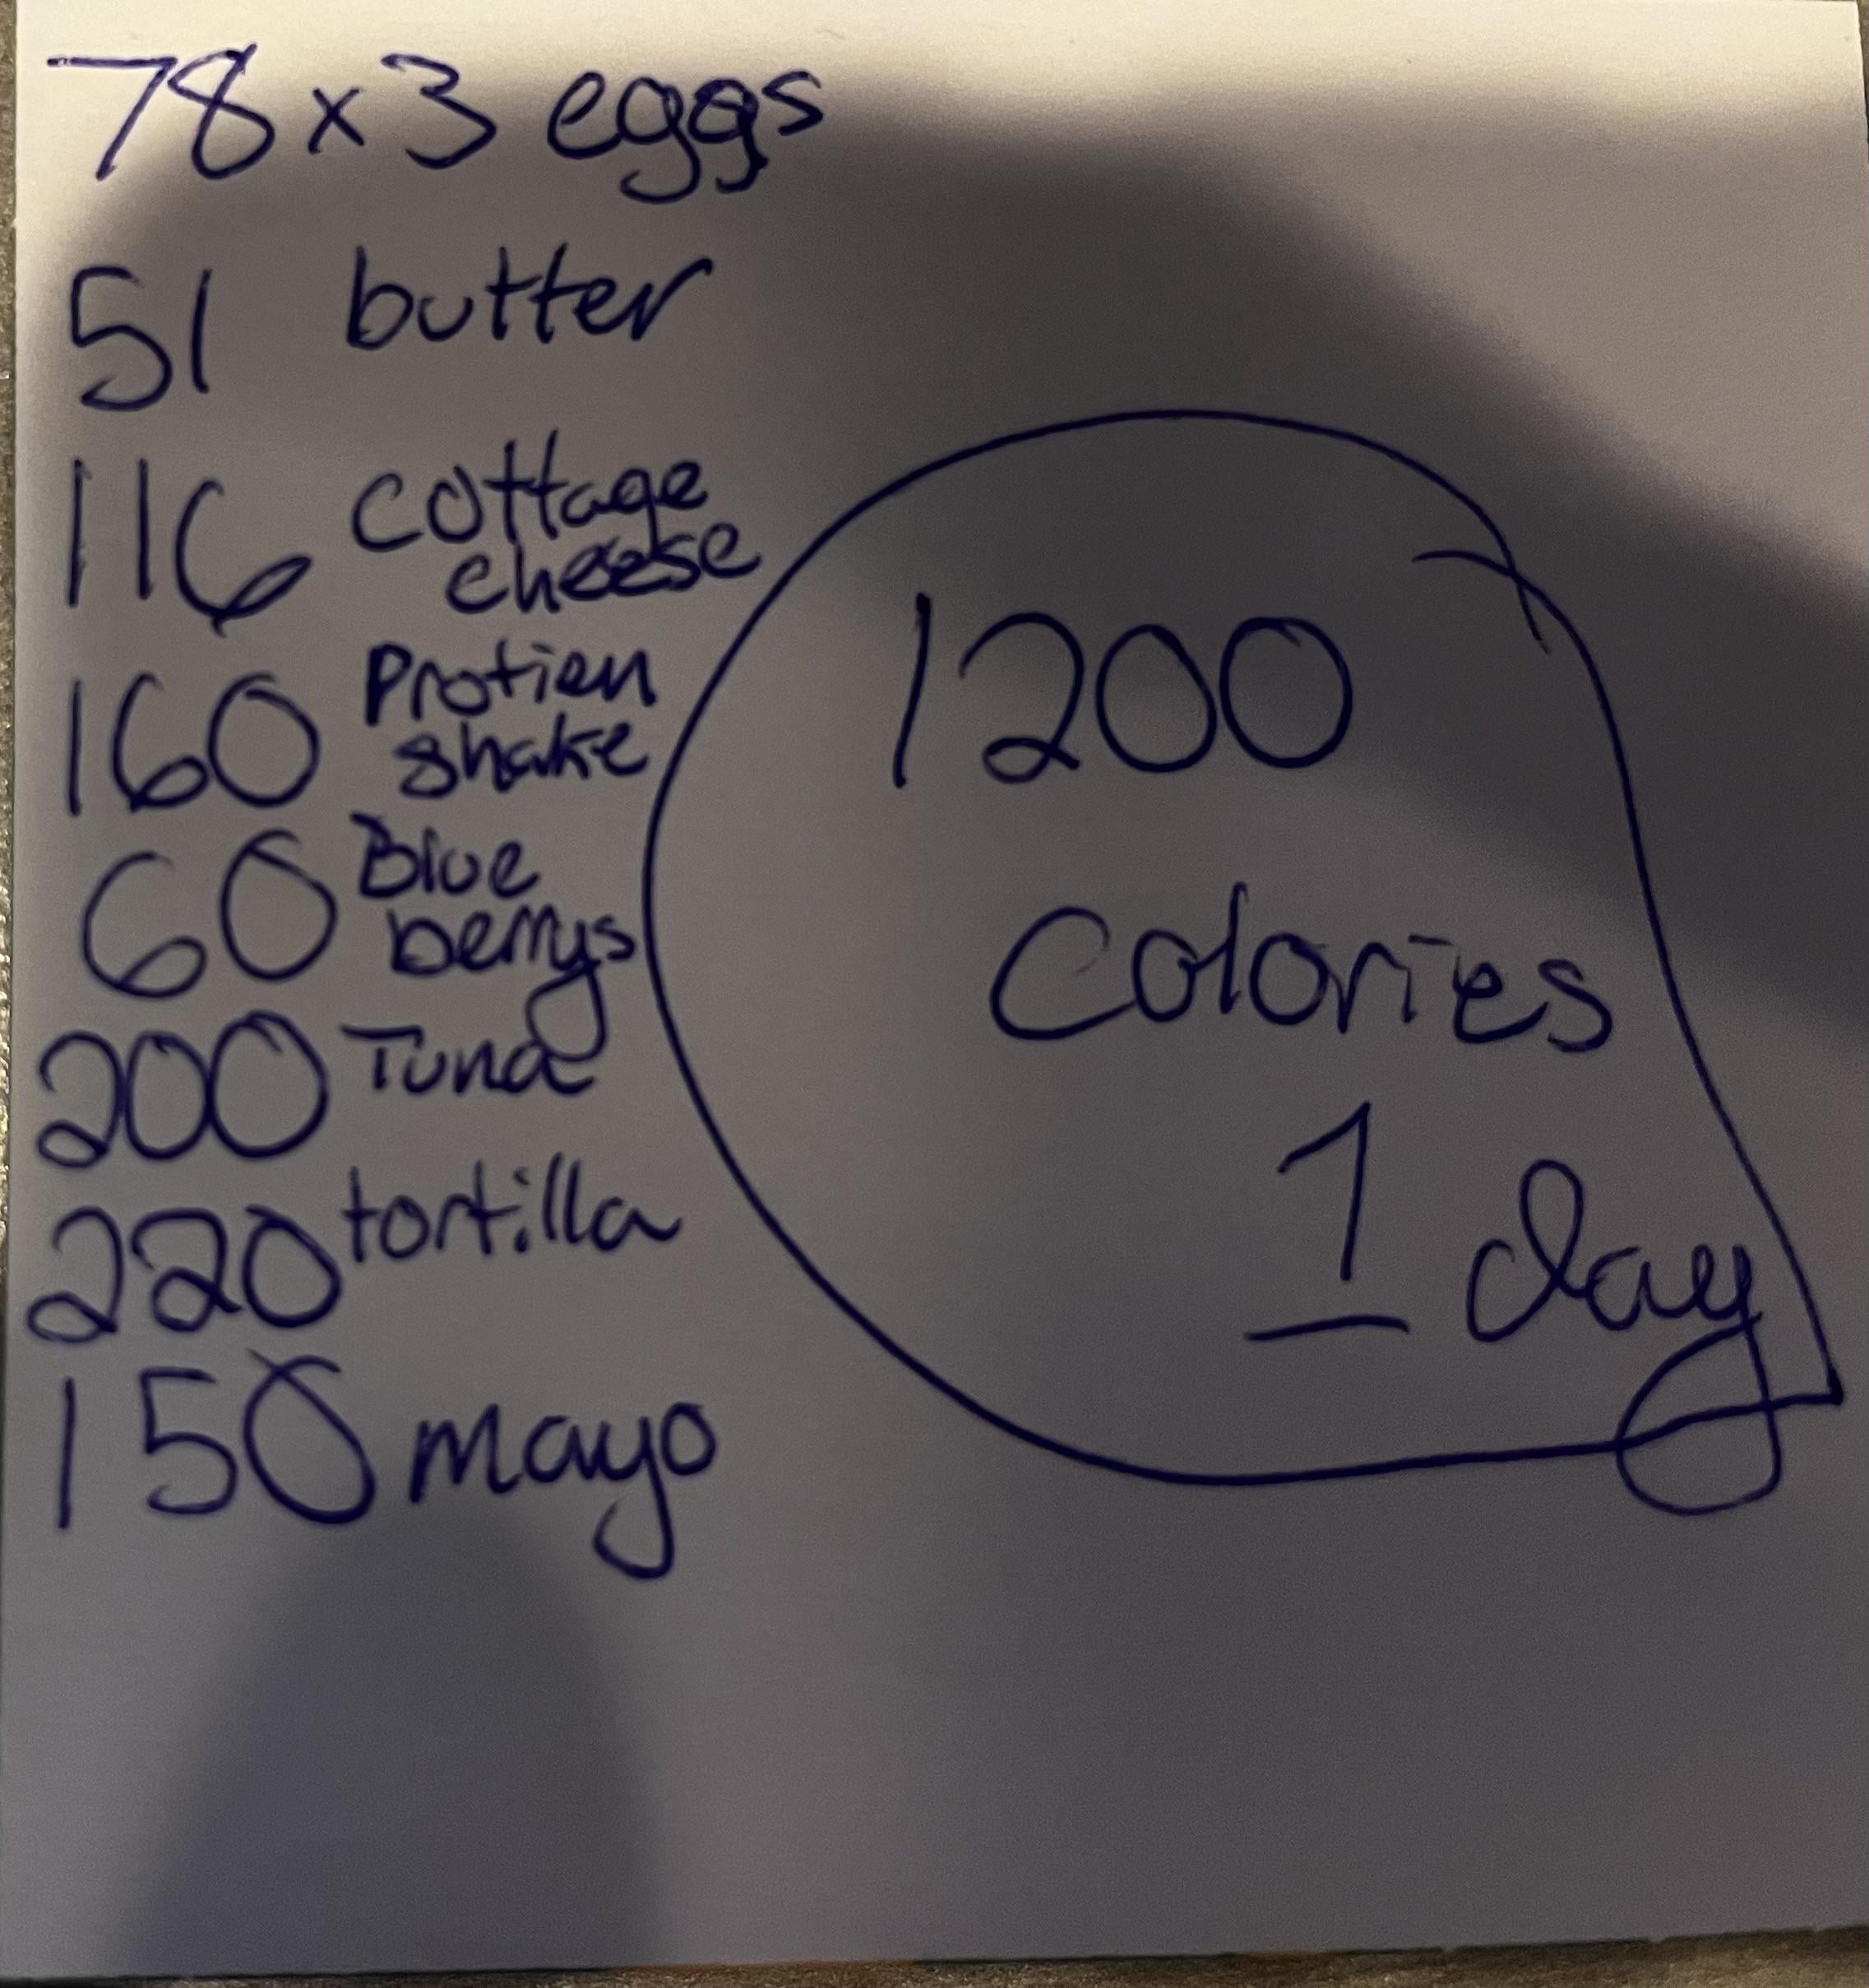 78 x 3 eggs
51 butter
116 cottage
cheese
160 Protien
shake
60 Blue
berrys
200 Tuna
220 tortilla
150 mayo
1200
Colories
1 day